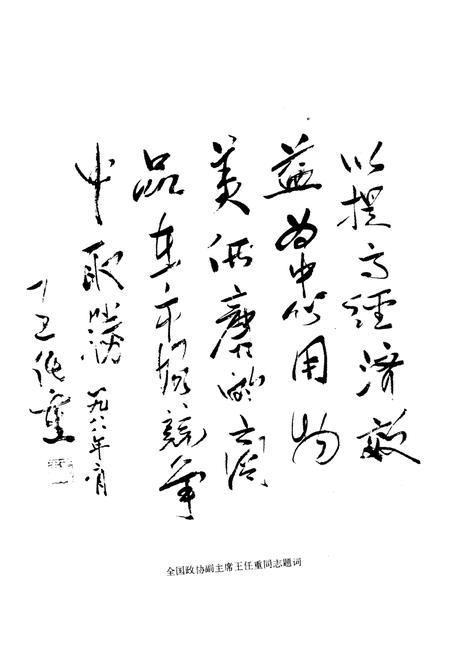 以提高经济效
益为中心用物
美价廉的商
品在市场竞争
中取胜
王任重
一九八八年六月
全国政协副主席王任重同志题词